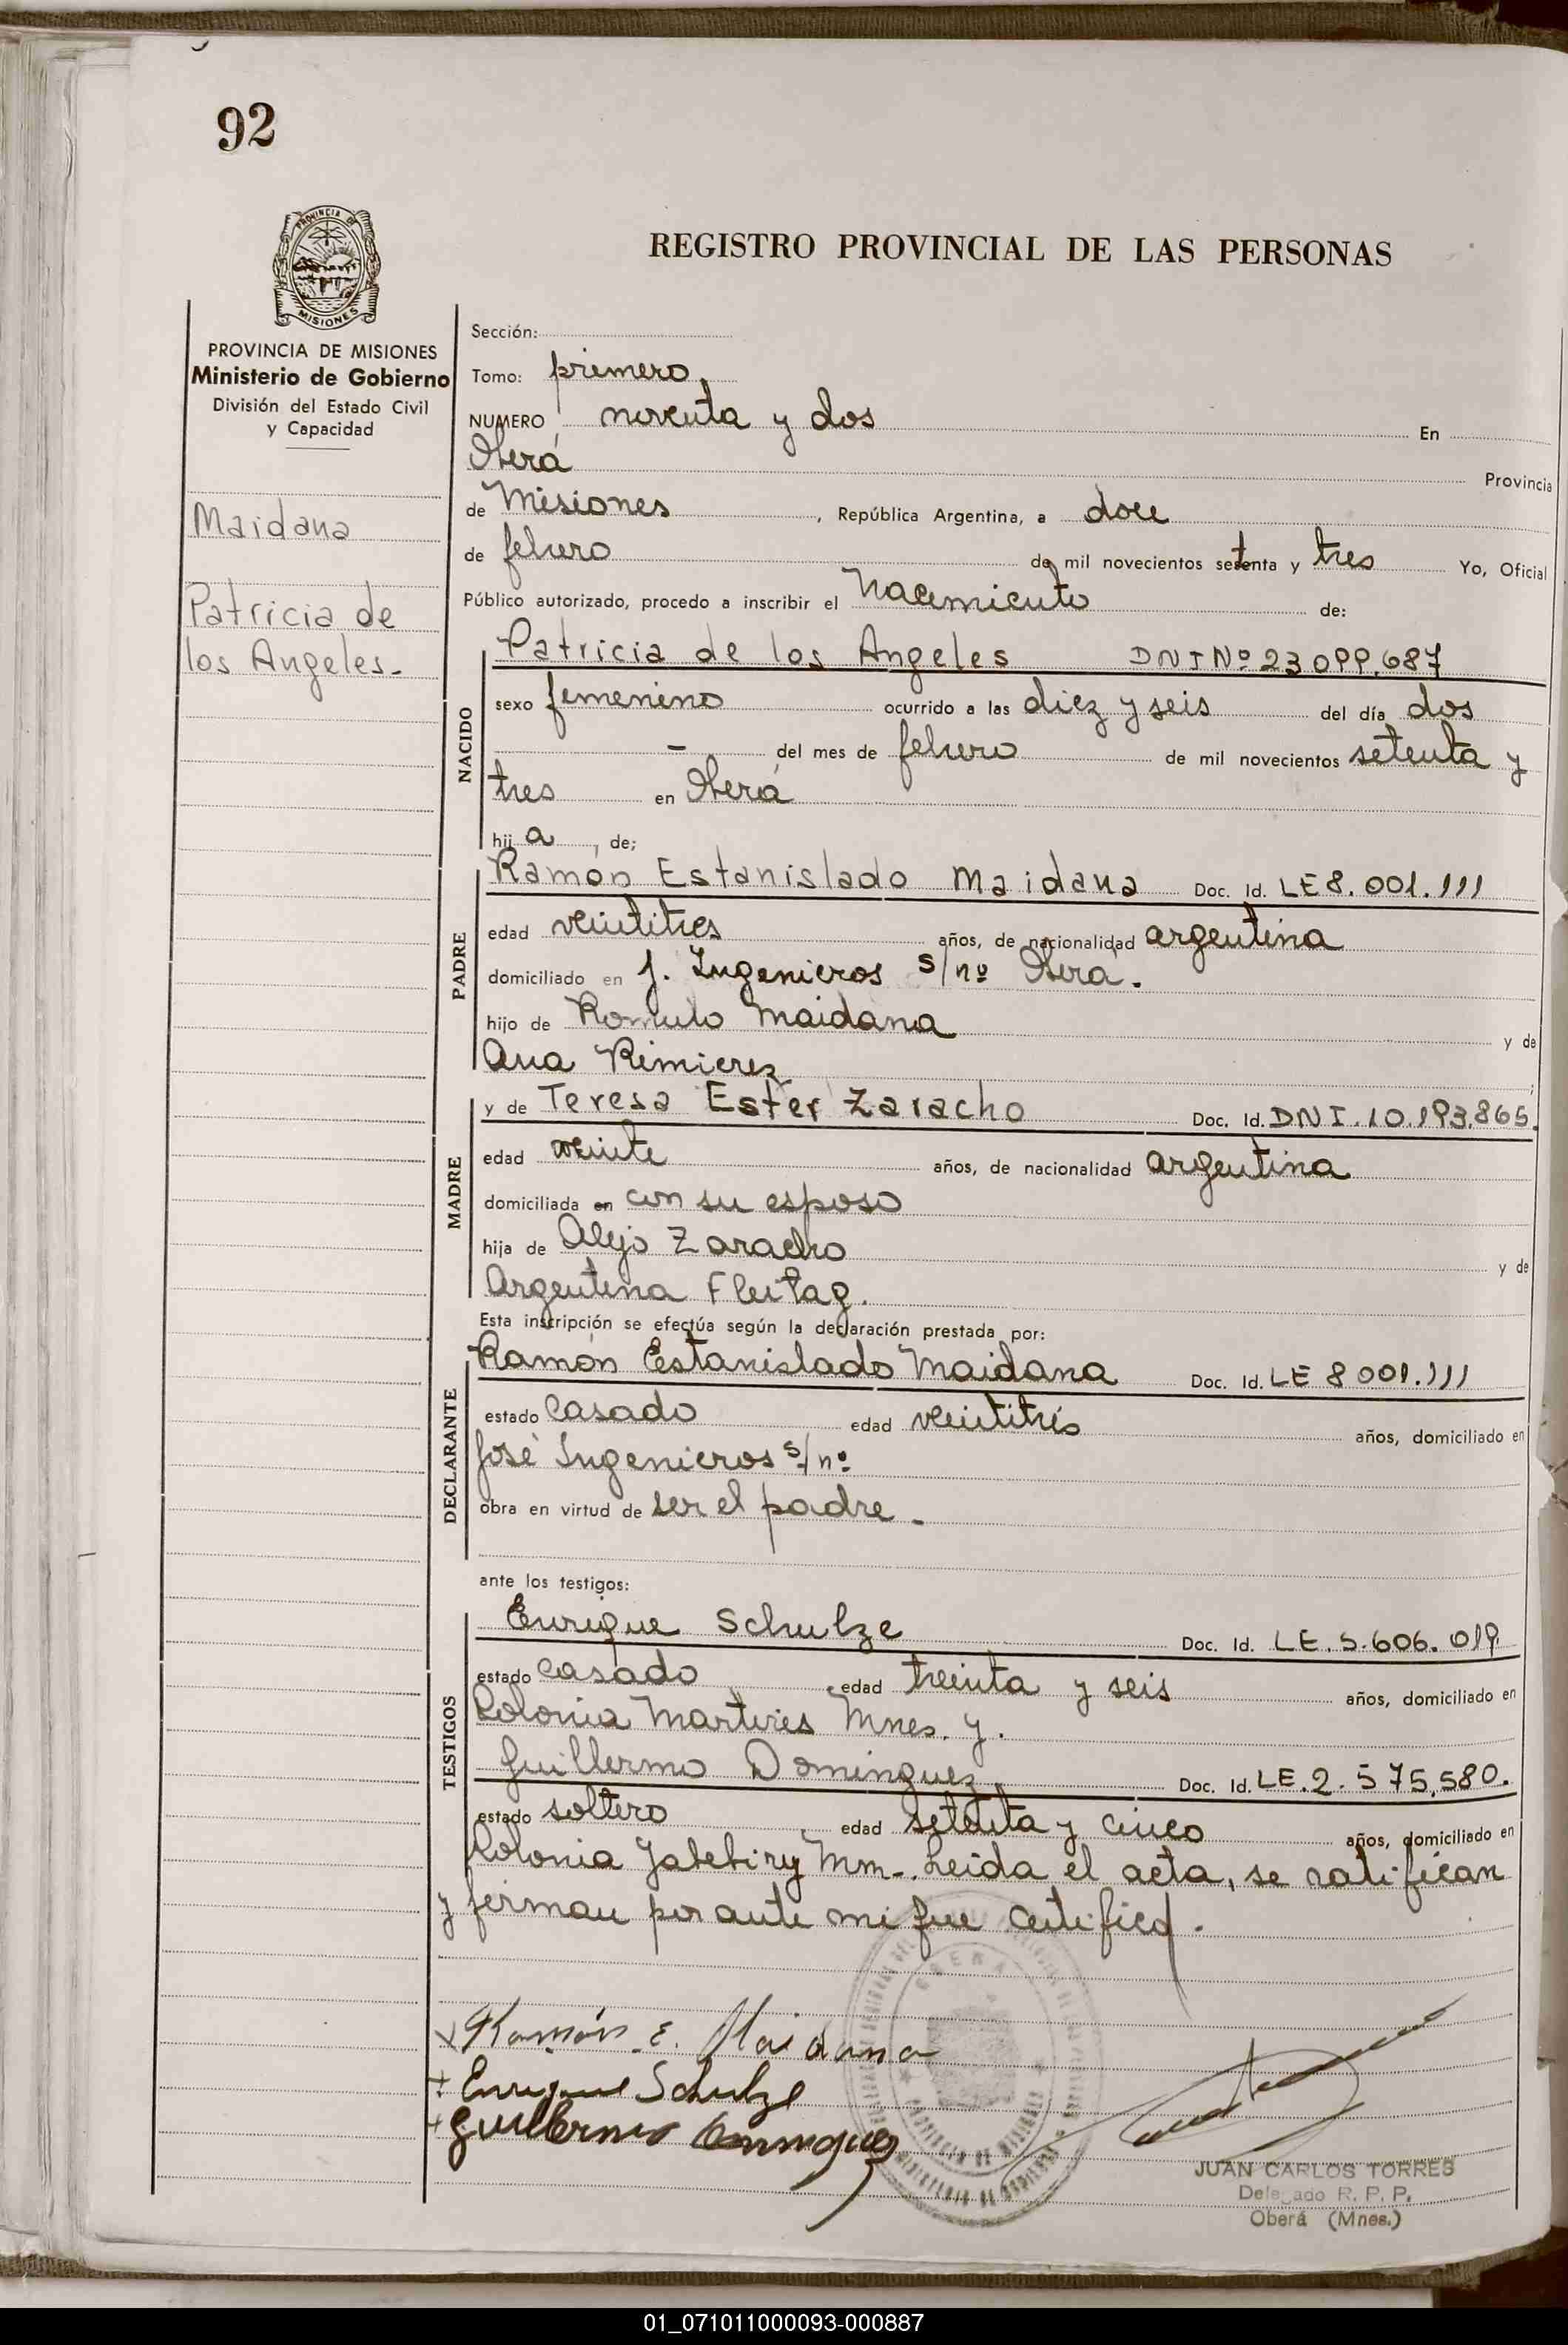 92
PROVINCIA DE
MISIONES
REGISTRO PROVINCIAL DE LAS PERSONAS
PROVINCIA DE MISIONES
Ministerio de Gobierno
División del Estado Civil
y Capacidad
Maidana
Patricia de
los Angeles-
Sección:
Tomo: primero
NUMERO noventa y dos En
Oberá Provincia
de Misiones, República Argentina, a doce
de febrero de mil novecientos setenta y tres Yo, Oficial
Público autorizado, procedo a inscribir el Nacimiento de:
NACIDO
Patricia de los Angeles DNI Nº 23 099.687
sexo femenino ocurrido a las diez y seis del día dos
- del mes de febrero de mil novecientos setenta y
tres en Oberá
hija, de;
PADRE
Ramón Estanislado Maidana Doc. Id. LE 8.001.111
edad veintitres años, de nacionalidad argentina
domiciliado en J. Ingenieros s/nº Oberá.
hijo de Romulo Maidana y de
Ana Rimierez
MADRE
y de Teresa Ester Zaracho Doc. Id. DNI.10.193.865.
edad veinte años, de nacionalidad argentina
domiciliada en con su esposo
hija de Alejo Zaracho y de
Argentina Fleitag.
Esta inscripción se efectúa según la declaración prestada por:
DECLARANTE
Ramón Estanislado Maidana Doc. Id. LE 8 001.111
estado casado edad veintitrés años, domiciliado en
José Ingenieros s/nº
obra en virtud de ser el padre.-
ante los testigos:
TESTIGOS
Enrique Schulze Doc. Id. LE.5.606.019
estado casado edad treinta y seis años, domiciliado en
Colonia Martires Mnes. y.
Guillermo Dominguez Doc. Id. LE.2.575.580.
estado soltero edad setenta y cinco años, domiciliado en
Colonia Yabebiry Mm-. Leida el acta, se ratifican
y firman por ante mi que certifico.
Ramón E. Maidana
Enrique Schulze
Guillermo Dominguez
OBERA
PROVINCIA DE MISIONES
MINISTERIO DE GOBIERNO
JUAN CARLOS TORRES
Delegado R. P. P.
Oberá (Mnes.)
01_071011000093-000887